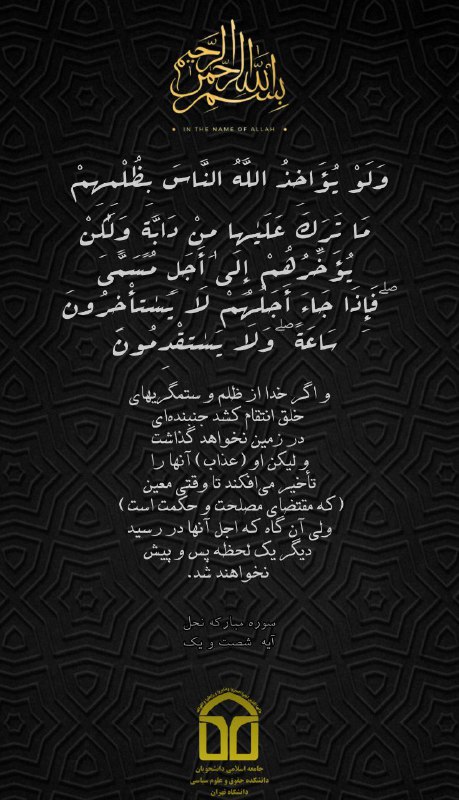 بسم الله الرحمن الرحيم
IN THE NAME OF ALLAH
وَلَوْ يُؤَاخِذُ اللَّهُ النَّاسَ بِظُلْمِهِمْ
مَا تَرَكَ عَلَيْهَا مِنْ دَابَّةٍ وَلَٰكِنْ
يُؤَخِّرُهُمْ إِلَىٰ أَجَلٍ مُسَمًّى
ۖ فَإِذَا جَاءَ أَجَلُهُمْ لَا يَسْتَأْخِرُونَ
سَاعَةً ۖ وَلَا يَسْتَقْدِمُونَ
و اگر خدا از ظلم و ستمگریهای
خلق انتقام کشد جنبنده‌ای
در زمین نخواهد گذاشت
و لیکن او (عذاب) آنها را
تأخیر می‌افکند تا وقتی معین
(که مقتضای مصلحت و حکمت است)
ولی آن گاه که اجل آنها در رسید
دیگر یک لحظه پس و پیش
نخواهند شد.
سوره مبارکه نحل
آیه شصت و یک
جامعه اسلامی دانشجویان
دانشکده حقوق و علوم سیاسی
دانشگاه تهران